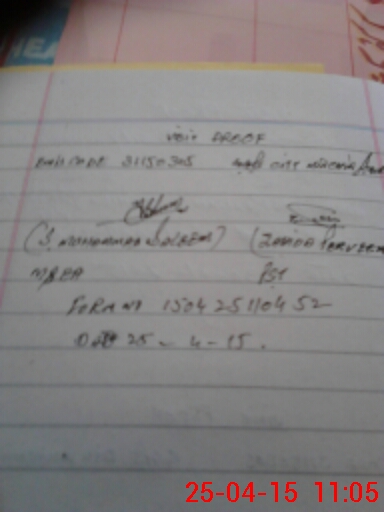 HEA
VISIT PROOF
EMIS CODE 31150305
(S. MOHAMMAD SALEEM) (ZAHIDA PARVEEN
MEA PST
FORM NO 150425110452
DATE 25-4-15.
25-04-15 11:05